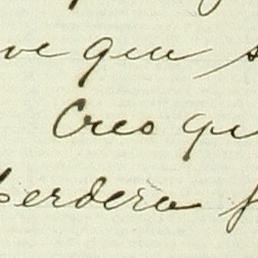 ve que s
Creo qu
perdera f